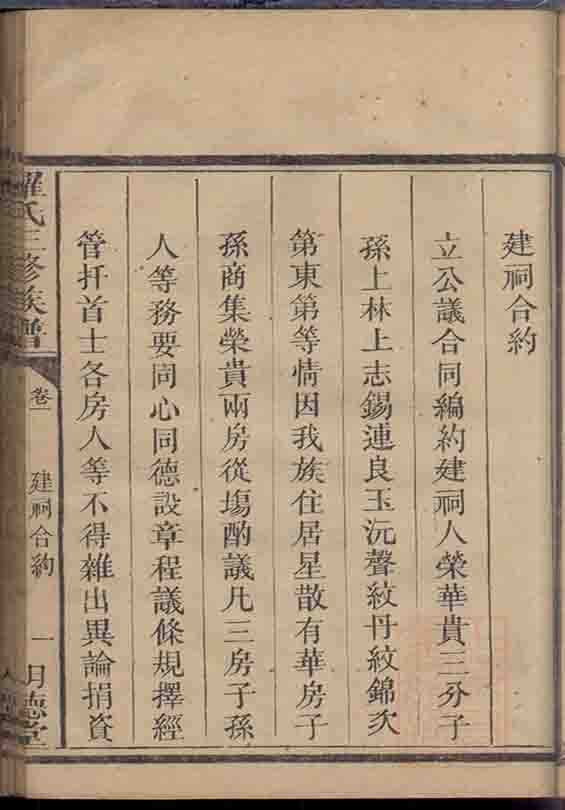 建祠合約
立公議合同編約建祠人榮華貴三分子
孫上林上志錫連良玉沅聲紋丹紋錦次
第東第等情因我族住居星散有華房子
孫商集榮貴兩房從塲酌議凡三房子孫
人等務要同心同德設章程議條規擇經
管扞首士各房人等不得雜出異論捐資
羅氏三修族譜
卷一
建祠合約
一
明德堂